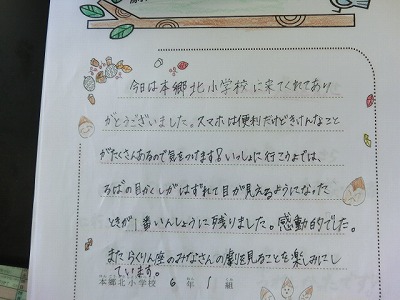 今日は本郷北小学校に来てくれてあり
がとうございました。スマホは便利だけどきけんなこと
がたくさんあるので気をつけます!いっしょに行こうよでは、
ろばの目かくしがはずれて目が見えるようになった
ときが1番いんしょうに残りました。感動的でした。
またらくりん座のみなさんの劇を見ることを楽しみにし
ています。
本郷北小学校 6年 1組